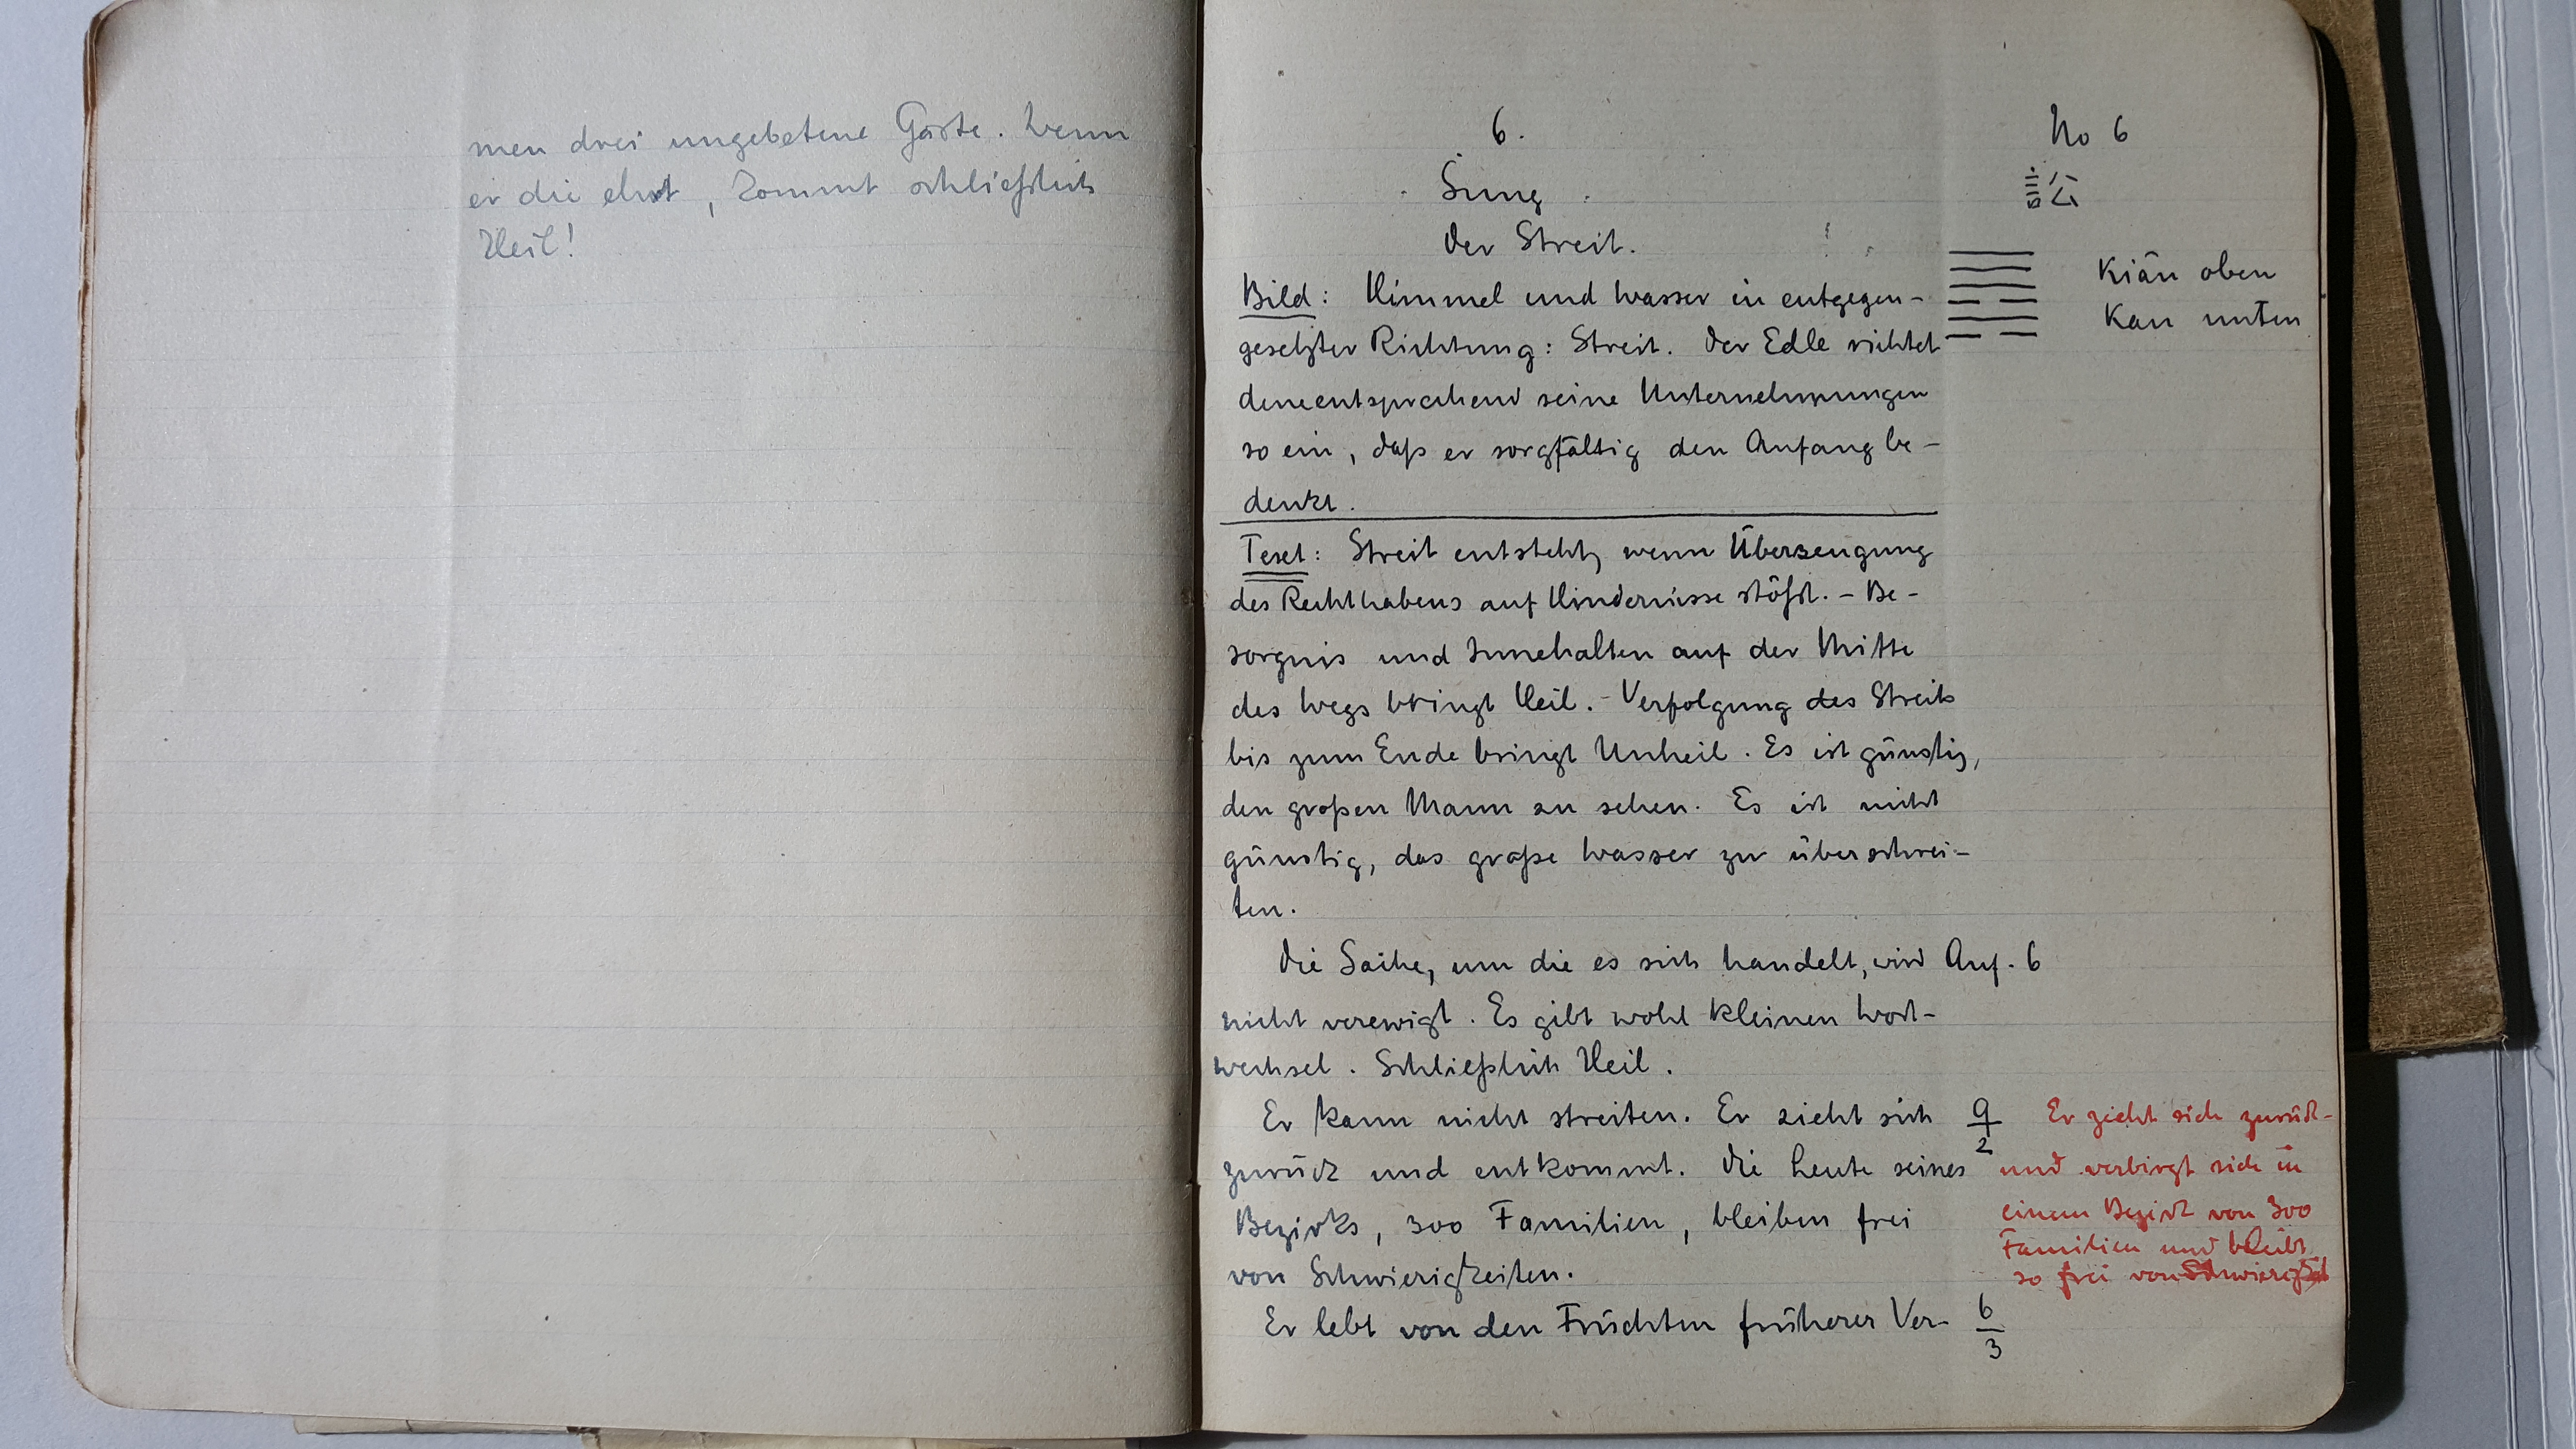 men drei ungebetene Gäste. Wenn
er die ehrt, kommt schließlich
Heil!
6.
Sung
der Streit.
Bild: Himmel und Wasser in entgegen-
gesetzter Richtung: Streit. Der Edle richtet
dementsprechend seine Unternehmungen
so ein, daß er sorgfältig den Anfang be-
denkt.
Text: Streit entsteht, wenn Überzeugung
des Rechthabens auf Hindernisse stößt. - Be-
sorgnis und Innehalten auf der Mitte
des Wegs bringt Heil. - Verfolgung des Streits
bis zum Ende bringt Unheil. Es ist günstig,
den großen Mann zu sehen. Es ist nicht
günstig, das große Wasser zu überschrei-
ten.
Die Sache, um die es sich handelt, wird
nicht verewigt. Es gibt wohl kleinen Wort-
wechsel. Schließlich Heil.
Er kann nicht streiten. Er zieht sich
zurück und entkommt. Die Leute seines
Bezirks, 300 Familien, bleiben frei
von Schwierigkeiten.
Er lebt von den Früchten früherer Ver-
No 6
訟
Kiän oben
Kan unten
Anf. 6
9
2
Er zieht sich zurück
und verbirgt sich in
einem Bezirk von 300
Familien und bleibt
so frei von Schwierigkeit
6
3